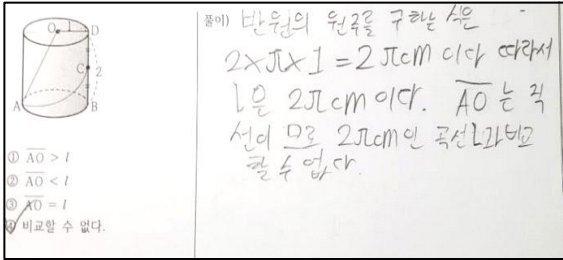 O
1
D
C
2
A
B
① AO > l
② AO < l
③ AO = l
④ 비교할 수 없다.
풀이) 반원의 원주를 구하는 식은
2×π×1=2πcm 이다 따라서
l은 2πcm 이다. AO 는 직
선이 므로 2πcm인 곡선 l과 비교
할 수 없다.